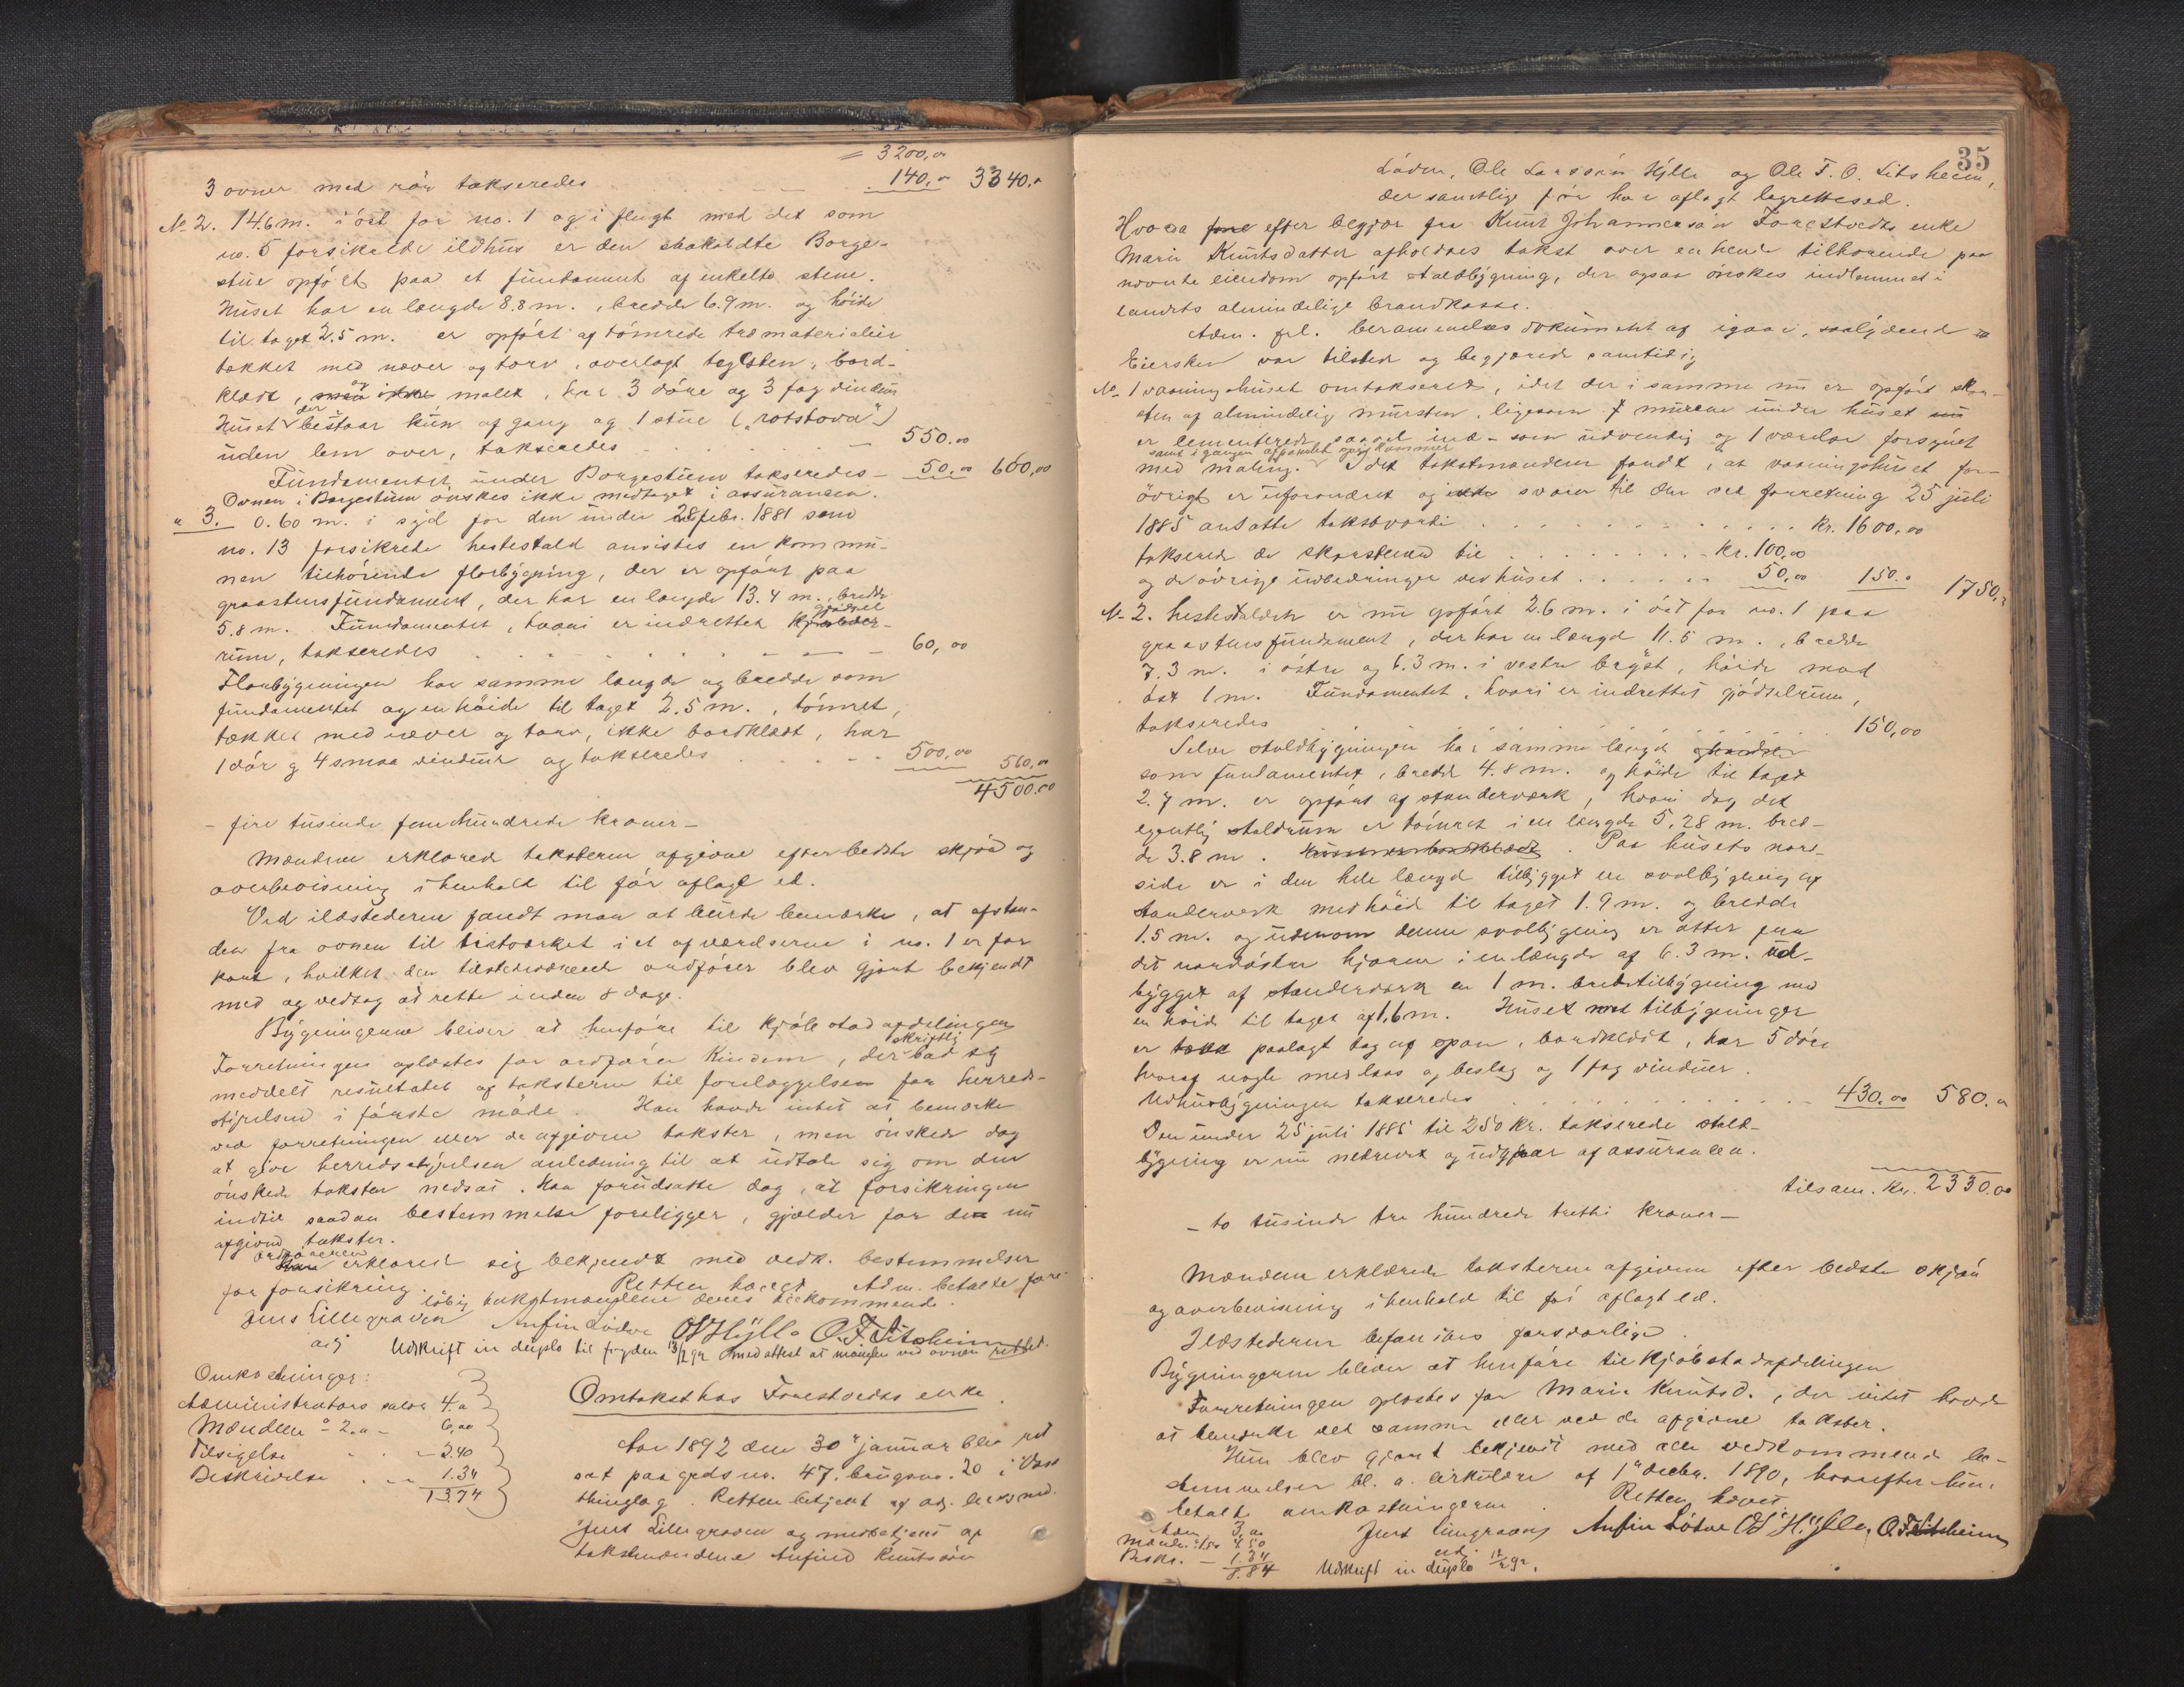 = 3200,00
3 ovner med rör takseredes 140,00 3340,00
No 2. 14.6 m. i öst for no. 1 og i flugt med det som
no. 5 forsikrede ildhus er den saakaldte Borge-
stue opfört paa et fundament af enkelte stene.
Huset har en længde 8.8 m., bredde 6.9 m. og höide
til taget 2.5 m. er opfört af tömrede træmaterialier
tækket med næver og torv, overlagt tagsten, bord-
klædt, men ikke og malet, har 3 döre og 3 fag vinduer
Huset der bestaar kun af gang og 1 stue ("rotstova")
uden lem over, takseredes 550.00
Fundamentet under Borgestuen takseredes 50,00 600,00
Ovnen i Borgestuen önskes ikke medtaget i assurancen.
" 3. 0.60 m. i syd for den under 28 febr. 1881 som
no. 13 forsikrede hestestald ansistes en kommu-
nen tilhörende florbygning, der er opfört paa
graastensfundament, der har en længde 13.4 m., bredde
5.8 m. Fundamentet, hvori er indrettet gjödsel
rum, takseredes 60,00
Florbygningen har samme længde og bredde som
fundamentet og en höide til taget 2.5 m., tömret,
tækket med næver og torv, ikke bordklædt, har
1 dör og 4 smaa vinduer og takseredes 500,00 560,00
4500.00
- fire tusinde femhundrede kroner -
Mændene erklærede taksterne afgivne efter bedste skjön og
overbevisning i henhold til för aflagt ed.
Ved ildstederne fandt man at burde bemærke, at afstan-
den fra ovnen til træværket i et af værelserne i no. 1 er for
kort, hvilket den tilstedeværende ordförer blev gjort bekjendt
med og vedtog at rette inden 8 dage.
Bygningerne bliver at henföre til kjöbstadafdelingen
Forretningen oplæstes for ordförer Kindem, der skriftlig bad sig
meddelt resultatet af taksterne til foreläggelsen for herreds-
styrelsen i förste möde. Han havde intet at bemærke
ved forretningen eller de afgivne takster, men önskede dog
at give herredsstyrelsen anledning til at udtale sig om den
önskede taksten nedsat. Han forudsatte dog, at forsikringen
indtil saadan bestemmelse foreligger, gjælder for de nu
afgivne takster.
Ordföreren erklæret sig bekjendt med vedk. bestemmelser
for forsikring. Retten hævet. Adm. betalte fore-
löbig takstmændene deres tilkommende.
Jens Lillegraven Anfin Lödve OL Hylle O. T. Sitsheim
adj Udskrift in duplo til fogden 13/2 92 med attest at manglen ved ovnen rettet.
Omkostninger:
Administrators salær 4.00
Mændene à 2.00 - 6,00
Tilsigelse - 2.40
Beskrivelse - 1.34
13.74
Omtakst hos Forestvedts enke.
Aar 1892 den 30 januar blev ret
sat paa gards no. 47. brugsno. 20 i Voss
thinglag. Retten betjent af adj. lensmd.
Jens Lillegraven og medbetjent af
takstmændene Anfind Knutssön
35
Lödve, Ole Larssön Hylle og Ole T. O. Sitsheim,
der samtlige för har aflagt lagrettesed.
Hvoda efter begjær fra Knut Johannessön Forestvedts enke
Mari Knutsdatter afholdtes takst over en hende tilhörende paa
nævnte eiendom opfört staldbygning, der ogsaa önskes indlemmet i
landets almindelige brandkasse.
Adm. frl. berammelses dokument af igaar, saalydende
Eiersken var tilstede og begjærede samtidig
No. 1 vaaningshuset omtakseret, idet der i samme nu er opfört skor-
sten af almindelig mursten, ligesom murene under huset
er cementerede saavel ind- som udvendig og 1 værelse forsynet
samt i gangen afpanlet og kammer
med maling. I det takstmændene fandt, at vaaningshuset for-
övrigt er uforandret og svarer til den ved forretning 25 juli
1885 ansatte takstværdi Kr. 1600,00
taksered de skorstenen til Kr. 100,00
og de övrige udbedringer ved huset 50,00 150.00 1750,00
No 2. hestestalden er nu opfört 2.6 m. i öst for no. 1 paa
graastensfundament, der har en længde 11.5 m., bredde
7.3 m. i östre og 6.3 m. i vestre bryst, höide mod
öst 1 m. Fundamentet, hvori er indrettet gjödselrum,
takseredes 150,00
Selve staldbygningen har samme længde
som fundamentet, bredde 4.8 m. og höide til taget
2.7 m. er opfört af stænderværk, hvori dog det
egentlig staldrum er tömret i en længde 5,28 m. bred-
de 3.8 m. Paa husets nord-
side er i den hele længde tilbygget en svalbygning af
stænderværk med höide til taget 1.9 m. og bredde
1.5 m. og udenom denne svalbygning er atter fra
det nordöstre hjörne i en længde af 6.3 m. ud-
bygget af stænderværk en 1 m. bred tilbygning med
en höide til taget af 1,6 m. Huset med tilbygninger
er paalagt tag af spon, bordklædt, har 5 döre
hvoraf nogle med laas og beslag og 1 fag vinduer.
Udhusbygningen takseredes 430.00 580.00
Den under 25 juli 1885 til 250 Kr. takserede stald-
bygning er nu nedrevet og udgaar af assurancen.
tilsam. Kr. 2330,00
- to tusinde tre hundrede tretti kroner -
Mændene erklærede taksterne afgivne efter bedste skjön
og overbevisning i henhold til för aflagt ed.
Ildstederne befandtes forsvarlige.
Bygningerne bliver at henföre til kjöbstadafdelingen
Forretningen oplæstes for Mari Knutsd., der intet havde
at bemærke ved samme eller ved de afgivne takster.
Hun blev gjort bekjendt med alle vedkommende be-
stemmelser bl. a. cirkulære af 1 decbr. 1890, hvorefter hun
betalte omkostningerne. Retten hævet.
Adm 3,00
Mænd. à 1.50 4.50
Beskr. - 1.34
8.84
Jens Lillegraven Anfin Lötve OL Hylle, O. T. Sitsheim
adj.
Udskrift in duplo 12/2 92.